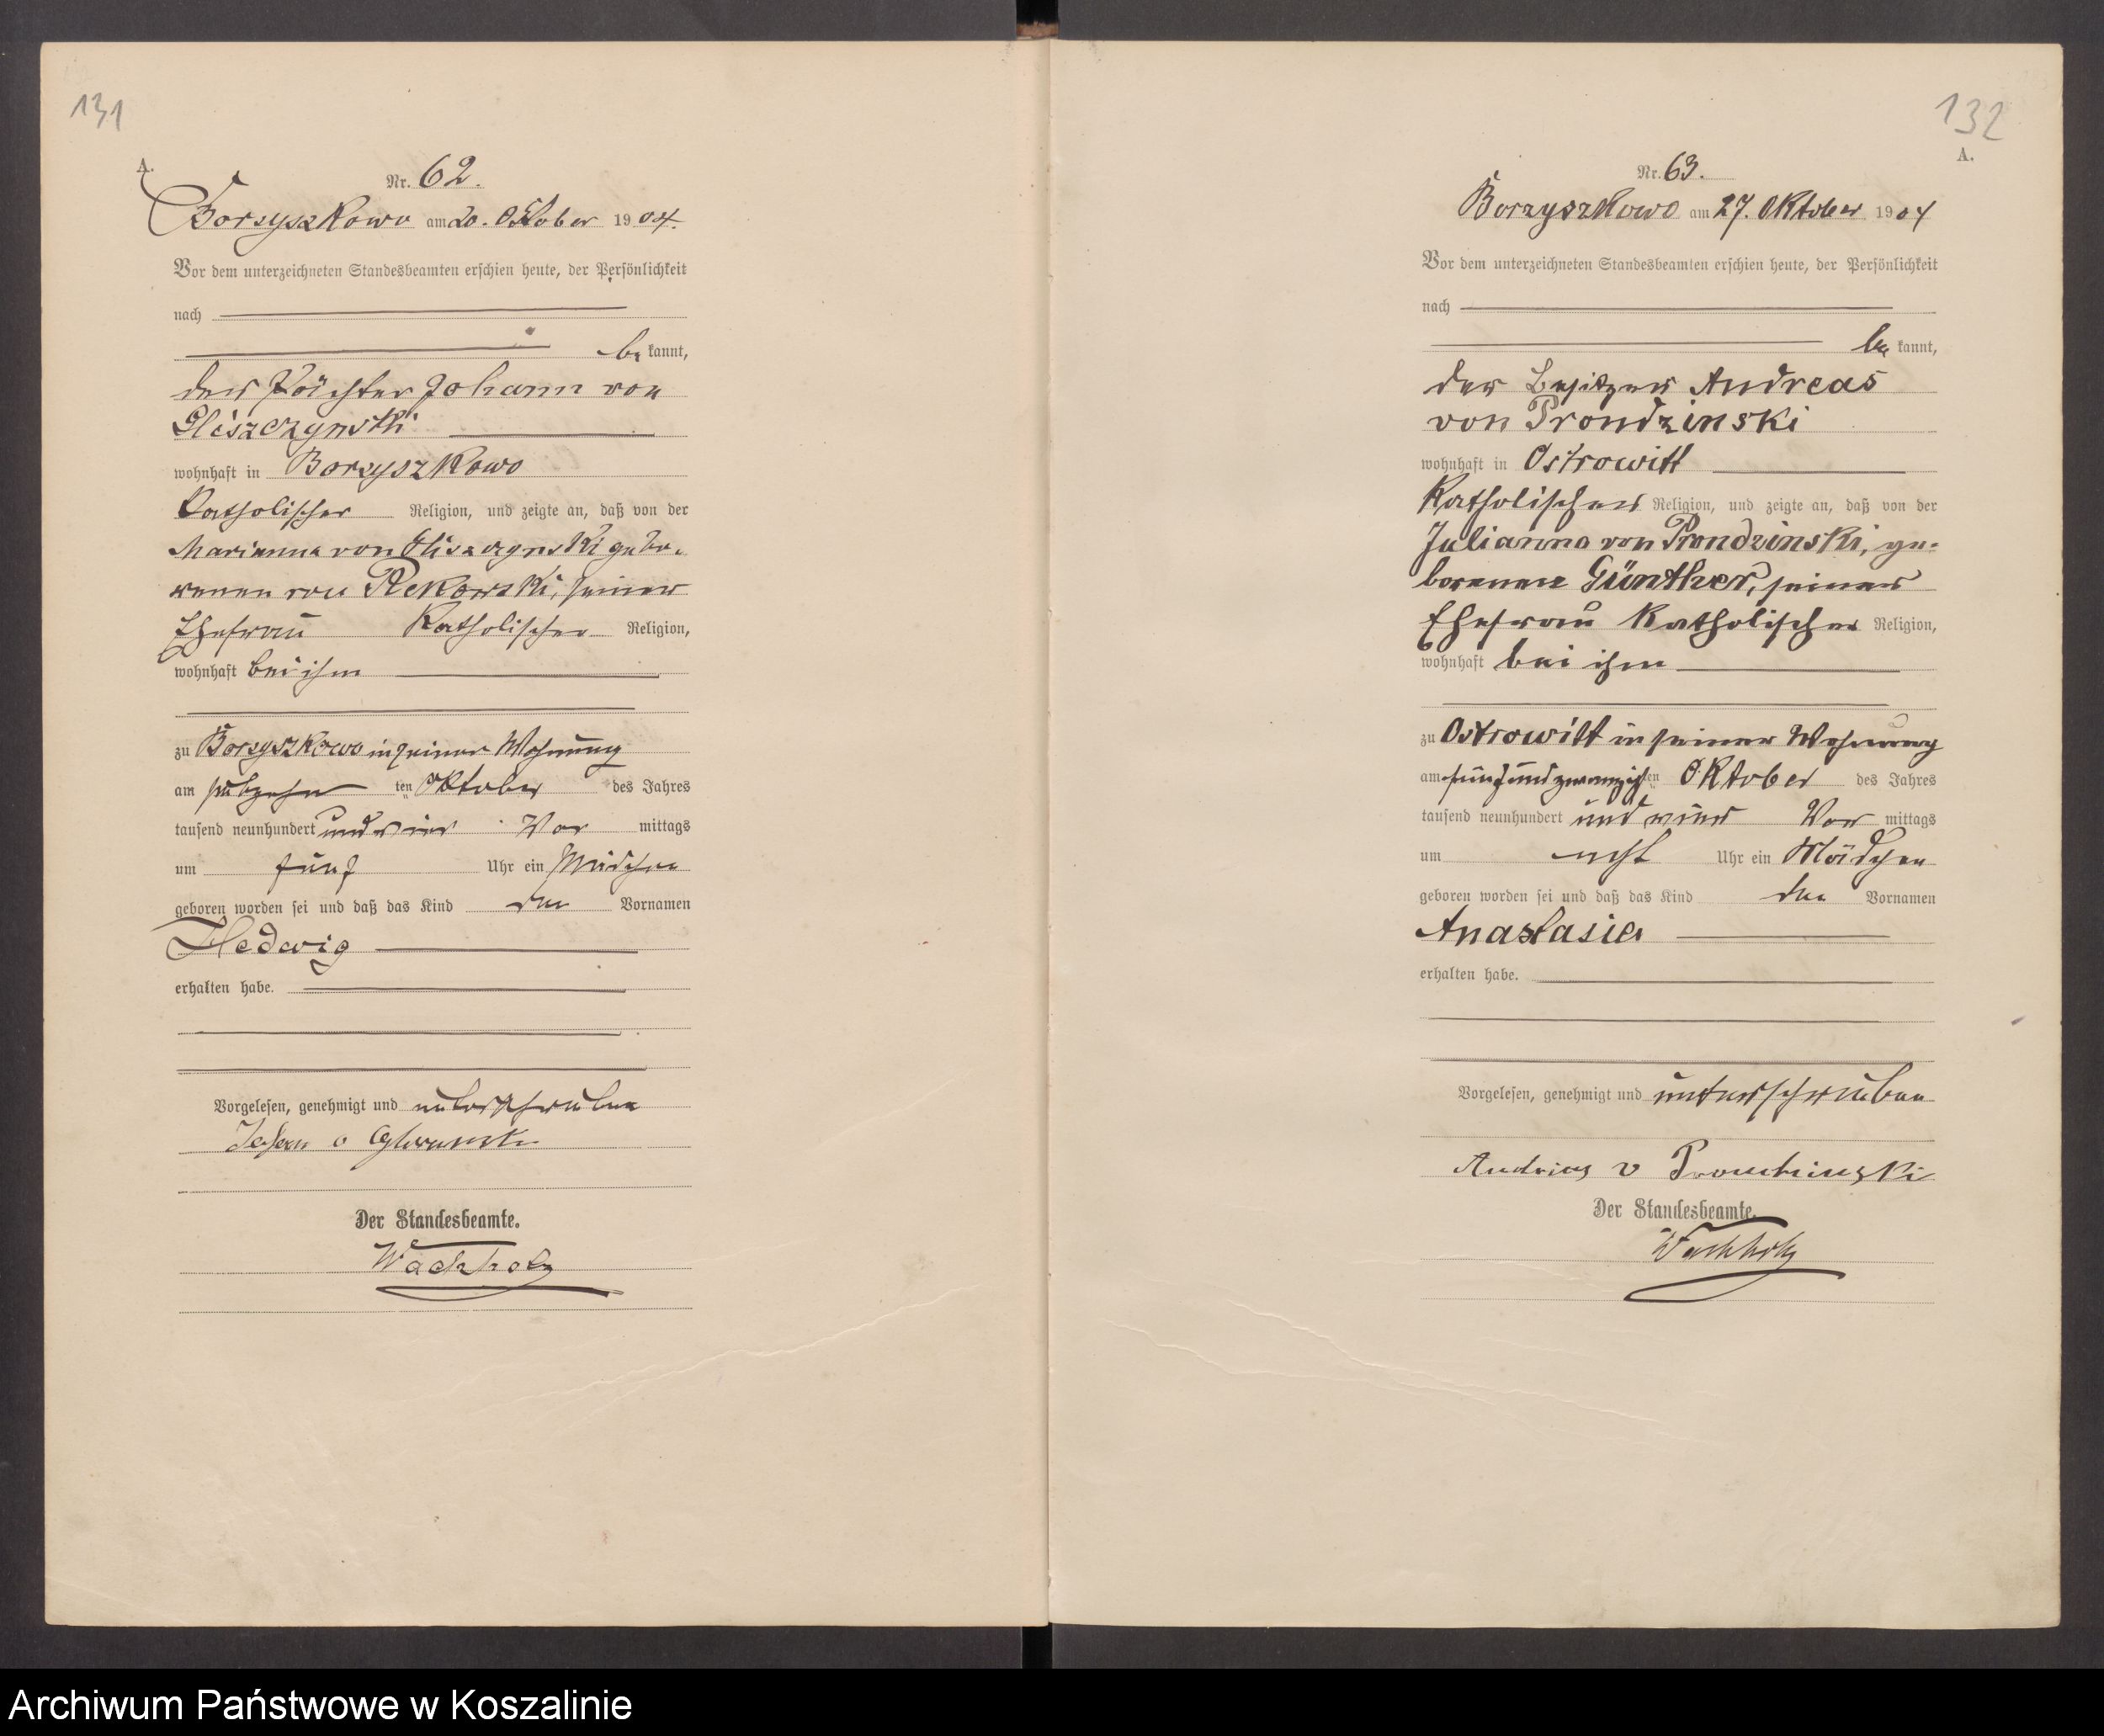 131
A.
Nr. 62.
Borzyszkowo am 20. Oktober 1904.
Vor dem unterzeichneten Standesbeamten erschien heute, der Persönlichkeit
nach
be kannt,
der Pächter Johann von
Gliszczynski
wohnhaft in Borzyszkowo
Katholischer Religion, und zeigte an, daß von der
Marianna von Gliszczynski gebo-
renen von Rekowski, seiner
Ehefrau Katholischer Religion,
wohnhaft bei ihm
zu Borzyszkowo in seiner Wohnung
am ten Oktober des Jahres
tausend neunhundert und vier Vor mittags
um fünf Uhr ein Mädchen
geboren worden sei und daß das Kind den Vornamen
Hedwig
erhalten habe.
Vorgelesen, genehmigt und unterschrieben
Der Standesbeamte.
Wachholz
132
A.
Nr. 63.
Borzyszkowo am 27. Oktober 1904
Vor dem unterzeichneten Standesbeamten erschien heute, der Persönlichkeit
nach
be kannt,
der Besitzer Andreas
von Prondzinski
wohnhaft in Ostrowitt
Katholischer Religion, und zeigte an, daß von der
Julianna von Prondzinski, ge-
borenen Günther, seiner
Ehefrau Katholischer Religion,
wohnhaft bei ihm
zu Ostrowitt in seiner Wohnung
am fünfundzwanzigsten Oktober des Jahres
tausend neunhundert und vier Vor mittags
um acht Uhr ein Mädchen
geboren worden sei und daß das Kind den Vornamen
Anastasia
erhalten habe.
Vorgelesen, genehmigt und unterschrieben
Andreas v Prondzinski
Der Standesbeamte.
Wachholz
Archiwum Państwowe w Koszalinie